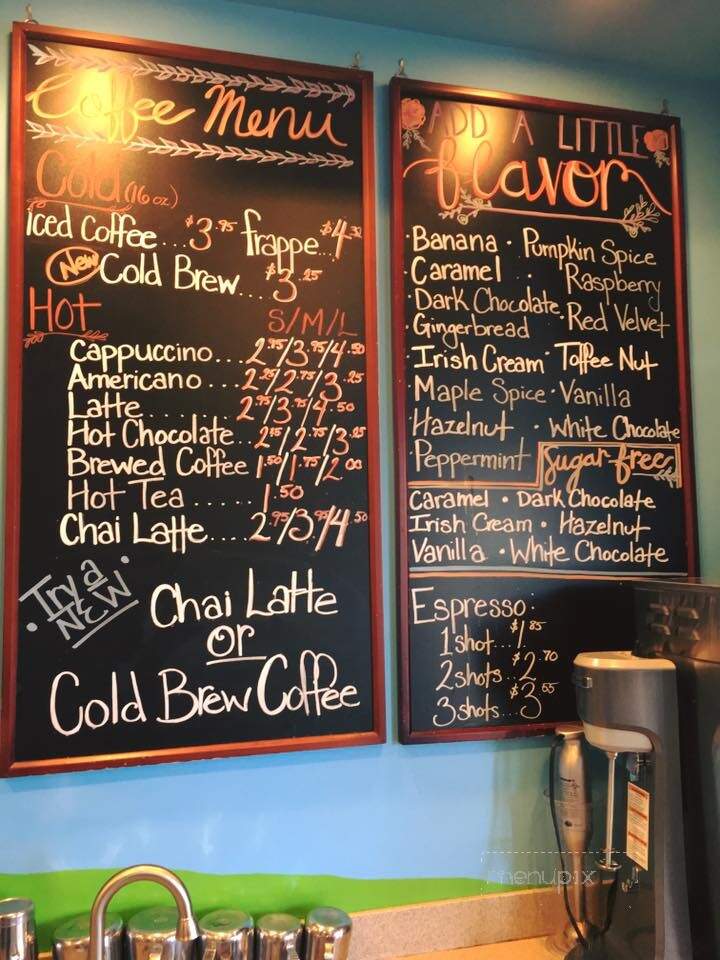 Coffee Menu
Cold (16 oz)
Iced Coffee...$3.95 frappe...$4.32
New Cold Brew....$3.25
Hot S/M/L
Cappuccino...2.95/3.75/4.50
Americano...2.25/2.75/3.25
Latte.......2.95/3.75/4.50
Hot Chocolate..2.25/2.75/3.25
Brewed Coffee 1.50/1.75/2.00
Hot Tea.....1.50
Chai Latte....2.95/3.95/4.50
• Try a NEW •
Chai Latte
or
Cold Brew Coffee
ADD A LITTLE
flavor
• Banana • Pumpkin Spice
• Caramel • Raspberry
• Dark Chocolate • Red Velvet
• Gingerbread
• Irish Cream • Toffee Nut
• Maple Spice • Vanilla
• Hazelnut • White Chocolate
Peppermint
Sugar free
Caramel • Dark Chocolate
Irish Cream • Hazelnut
Vanilla • White Chocolate
Espresso:
1 shot...$1.85
2 shots...$2.70
3 shots...$3.55
menupix